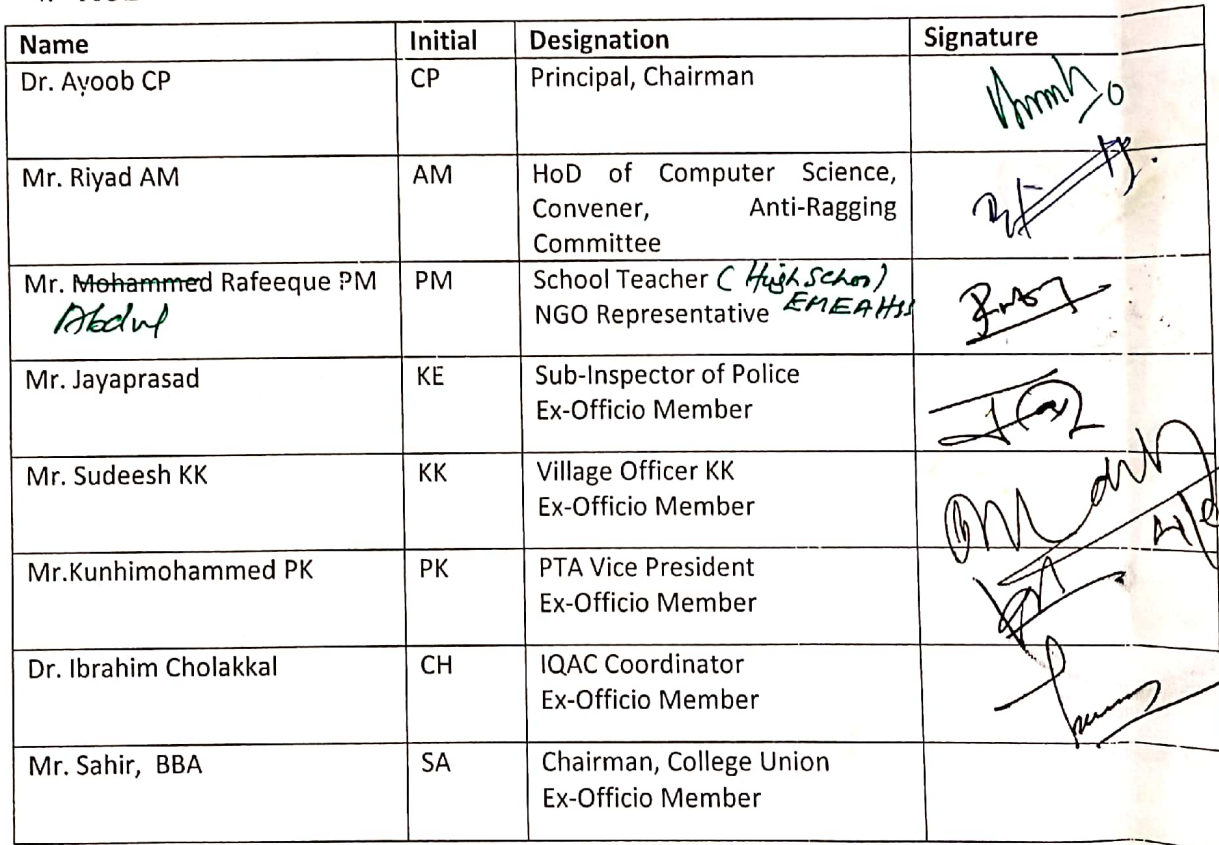 Name Initial Designation Signature
Dr. Ayoob CP CP Principal, Chairman
Mr. Riyad AM AM HoD of Computer Science,
Convener, Anti-Ragging
Committee
Mr. Mohammed Rafeeque PM PM School Teacher ( High School)
Abdul NGO Representative EMEAHSS
Mr. Jayaprasad KE Sub-Inspector of Police
Ex-Officio Member
Mr. Sudeesh KK KK Village Officer KK
Ex-Officio Member
Mr.Kunhimohammed PK PK PTA Vice President
Ex-Officio Member
Dr. Ibrahim Cholakkal CH IQAC Coordinator
Ex-Officio Member
Mr. Sahir, BBA SA Chairman, College Union
Ex-Officio Member